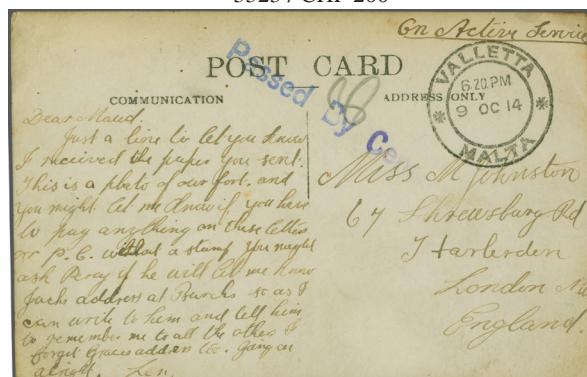 On Active Service
POST CARD
COMMUNICATION
ADDRESS ONLY
Passed By Cen
VALLETTA
6.20.PM
9 OC 14
MALTA
Dear Maud.
Just a line to let you know
I received the paper you sent.
This is a photo of our fort. and
you might let me know if you have
to pay anything on these letters
or P.C. without a stamp you might
ask Percy if he will let me know
Jacks address at so as I
can write to him and tell him
to remember me to all the others I
forget Graces address too. Going on
alright. Len.
Miss M Johnston
67 Shrewsbury Rd
Harlesden
London
England